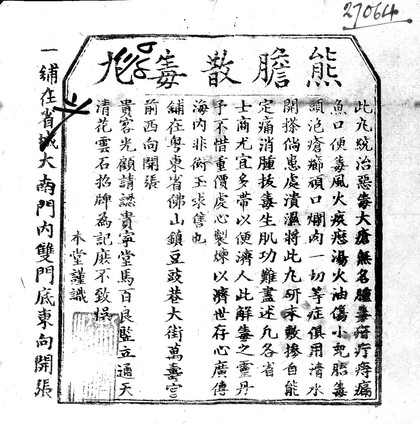 27064
熊膽散毒丸
此丸統治惡毒大瘡無名腫毒疳疔痔痛
魚口便毒風火痰癧湯火油傷小兒胎毒
頭泡瘡癤頑口爛肉一切等症俱用清水
開搽倘患處潰濕將此丸研末敷摻自能
定痛消腫拔毒生肌功難盡述凡各省
士商尤宜多帶以便濟人此解毒之靈丹
予不惜重價處心製煉以濟世存心廣傳
海內非衒玉求售也
舖在粵東省佛山鎮豆豉巷大街萬壽宮
前西向開張
貴客光顧請認貴寧堂馬百良監立通天
清花雲石招牌為記庶不致悞
本堂謹識
一舖在省城大南門內雙門底東向開張